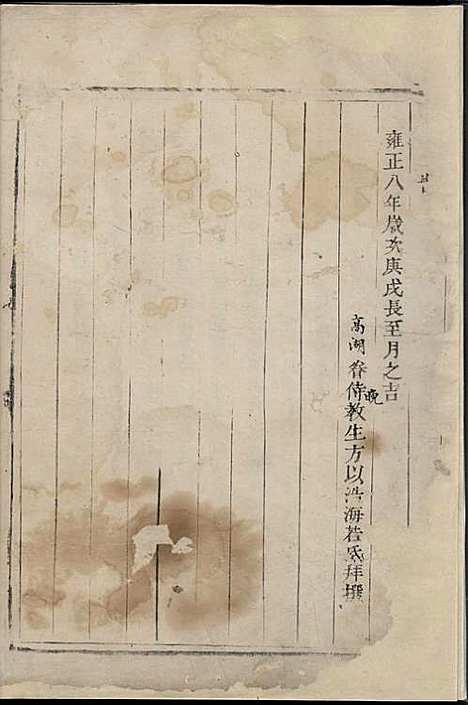 雍正八年歲次庚戌長至月之吉
高湖眷晚侍教生方以浩海若氏拜撰